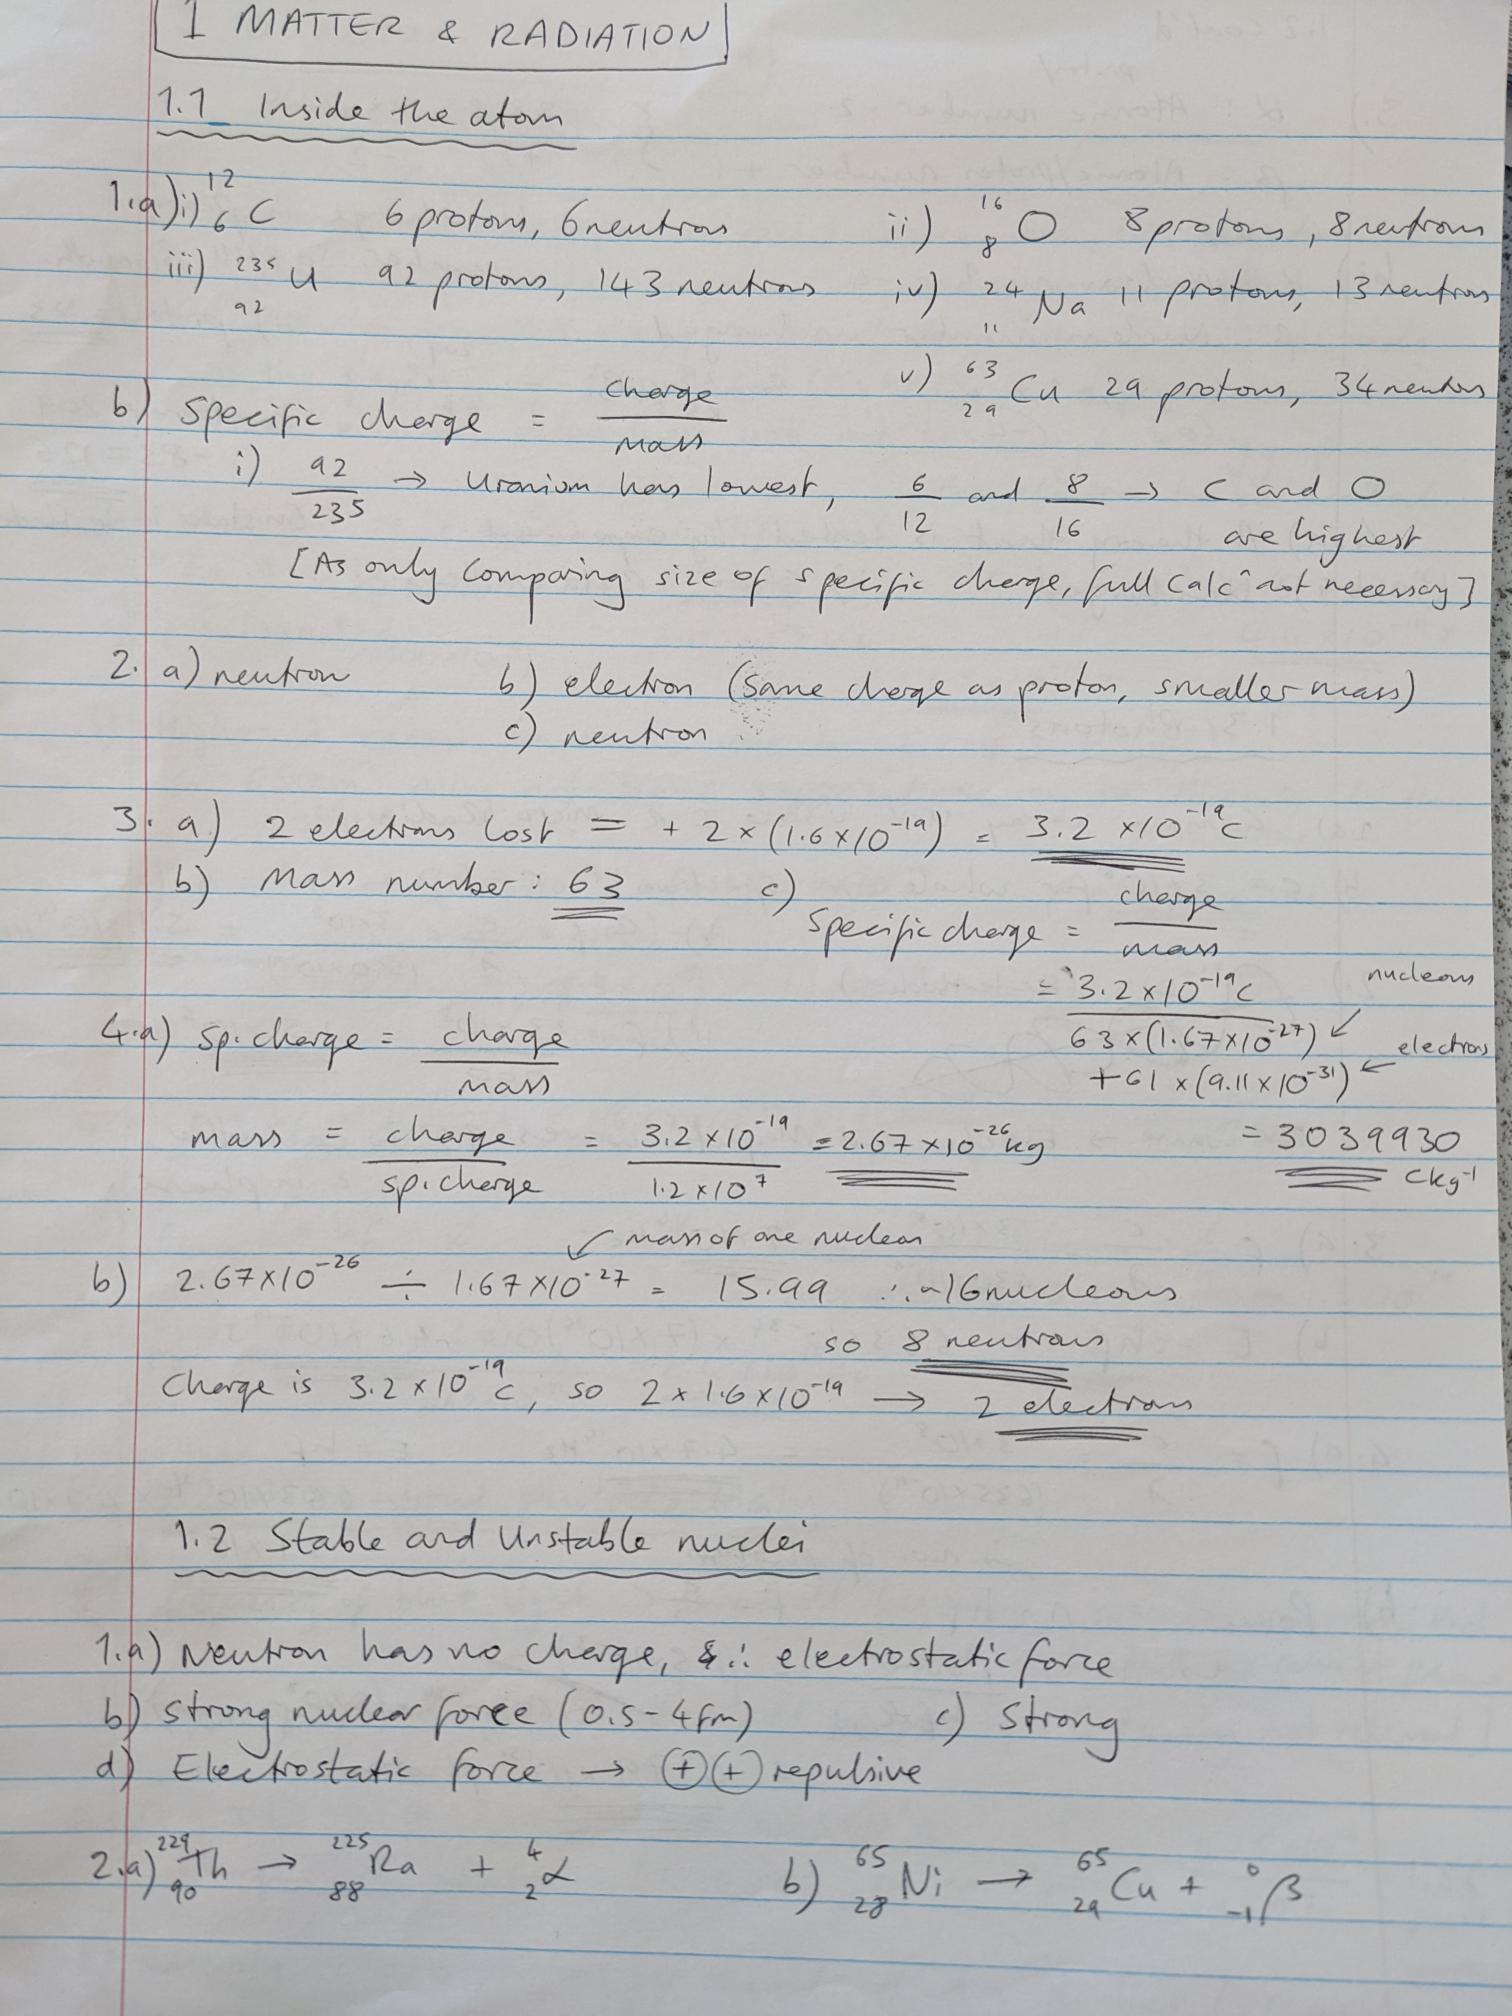 1 MATTER & RADIATION
1.1 Inside the atom
1.a) i) ¹²₆C 6 protons, 6 neutrons ii) ¹⁶₈O 8 protons, 8 neutrons
iii) ²³⁵₉₂U 92 protons, 143 neutrons iv) ²⁴₁₁Na 11 protons, 13 neutrons
v) ⁶³₂₉Cu 29 protons, 34 neutrons
b) Specific charge = charge / mass
i) 92/235 → Uranium has lowest, 6/12 and 8/16 → C and O
are highest
[As only comparing size of specific charge, full calcⁿ not necessary]
2. a) neutron b) electron (same charge as proton, smaller mass)
c) neutron
3. a) 2 electrons lost = + 2 × (1.6 × 10⁻¹⁹) = 3.2 × 10⁻¹⁹ C
b) Mass number : 63 c)
Specific charge = charge / mass
= 3.2 × 10⁻¹⁹ C / 63 × (1.67 × 10⁻²⁷) ↙ nucleons
+ 61 × (9.11 × 10⁻³¹) ← electrons
= 3039930 Ckg⁻¹
4.a) sp. charge = charge / mass
mass = charge / sp. charge = 3.2 × 10⁻¹⁹ / 1.2 × 10⁷ = 2.67 × 10⁻²⁶ kg
↙ mass of one nucleon
b) 2.67 × 10⁻²⁶ ÷ 1.67 × 10⁻²⁷ = 15.99 ∴ ~16 nucleons
so 8 neutrons
Charge is 3.2 × 10⁻¹⁹ C, so 2 × 1.6 × 10⁻¹⁹ → 2 electrons
1.2 Stable and Unstable nuclei
1.a) Neutron has no charge, & ∴ electrostatic force
b) Strong nuclear force (0.5 - 4 fm) c) Strong
d) Electrostatic force → ⊕⊕ repulsive
2.a) ²²⁹₉₀Th → ²²⁵₈₈Ra + ⁴₂α b) ⁶⁵₂₈Ni → ⁶⁵₂₉Cu + ⁰₋₁β